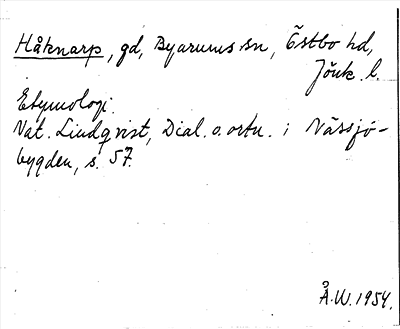 Håknarp, gd, Byarums sn, Östbo hd,
Jönk. l.
Etymologi.
Nat. Lindqvist, Dial. o. ortn. i Nässjö-
bygden, s. 57.
Å.W. 1954.